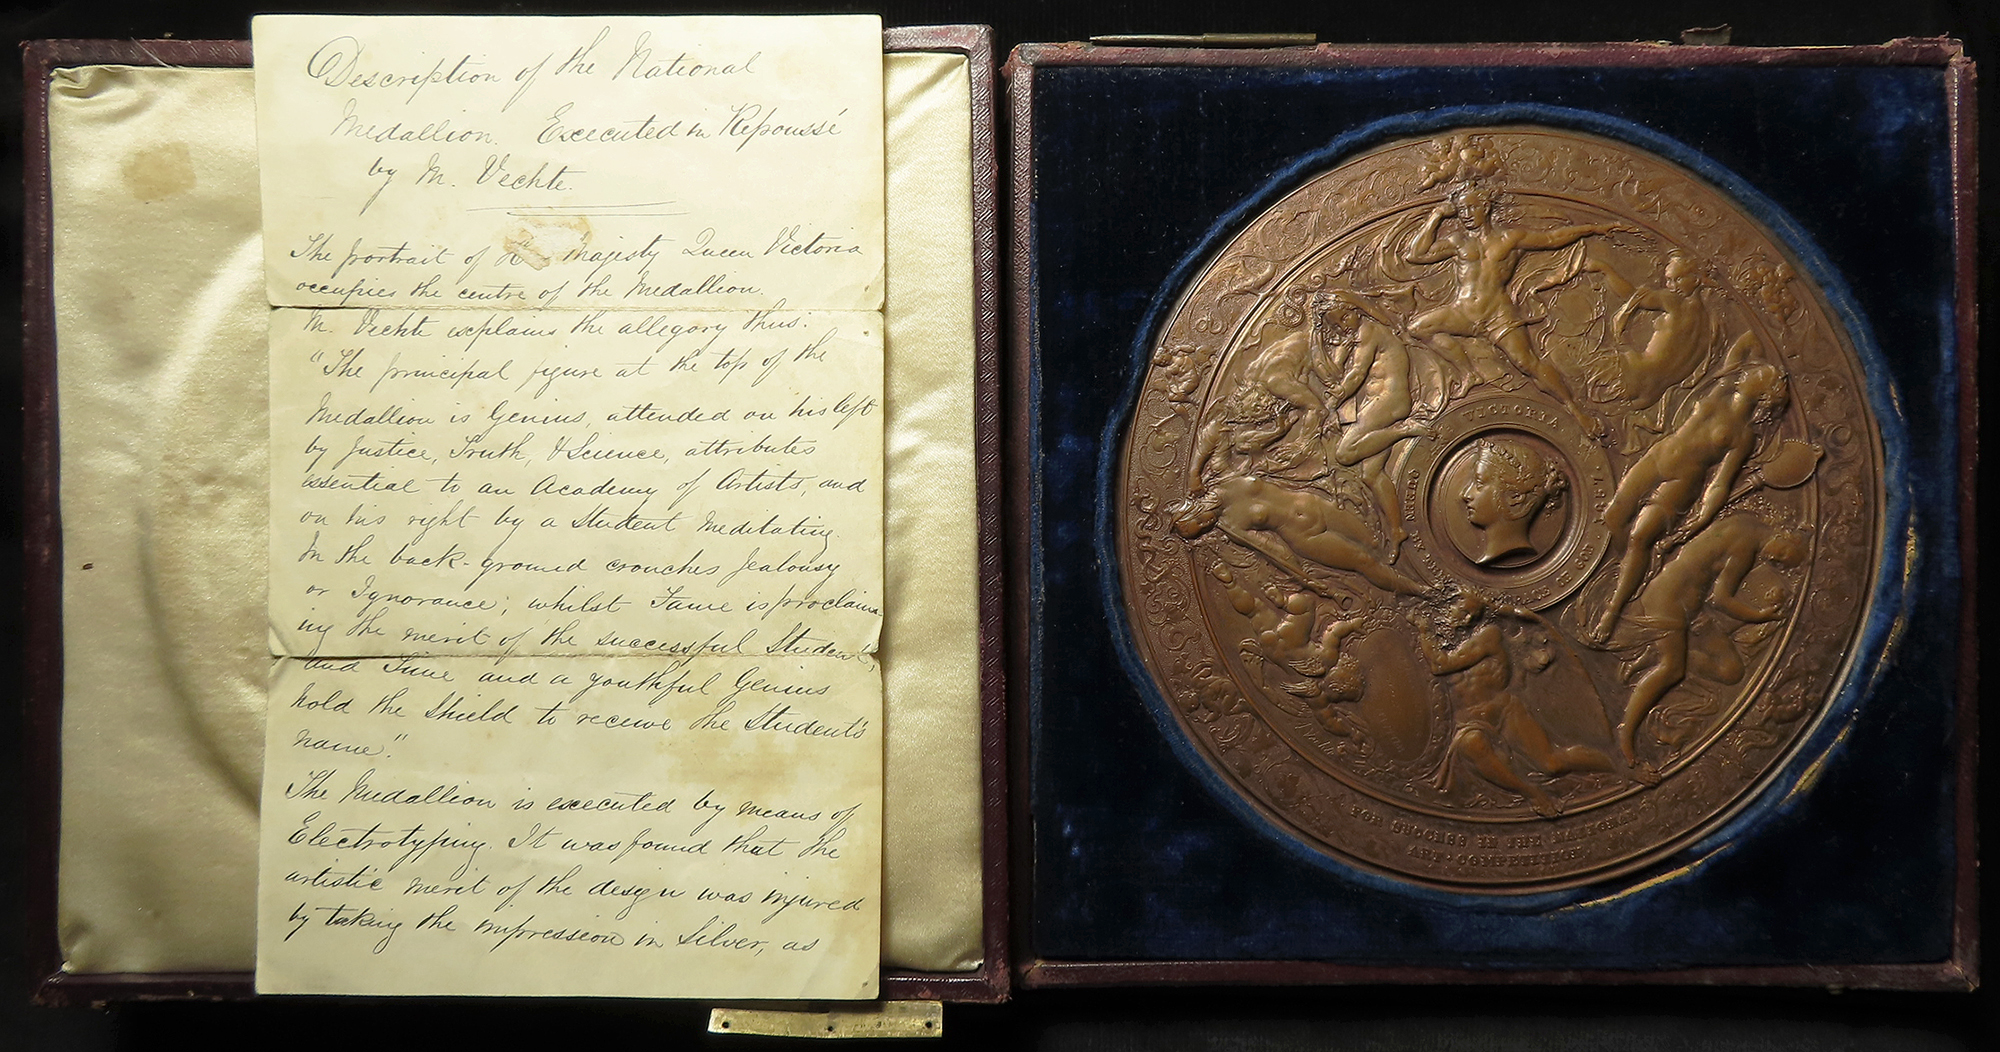 Description of the National
Medallion. Executed in Repoussé
by M. Vechte.
The portrait of Majesty Queen Victoria
occupies the centre of the Medallion.
M. Vechte explains the allegory thus:
"The principal figure at the top of the
Medallion is Genius, attended on his left
by Justice, Truth, & Science, attributes
essential to an Academy of Artists, and
on his right by a Student Meditating.
In the back-ground crouches Jealousy
or Ignorance; whilst Fame is proclaim-
ing the merit of the successful Student,
and Time and a youthful Genius
hold the Shield to receive the Student's
name".
The Medallion is executed by means of
Electrotyping. It was found that the
artistic merit of the design was injured
by taking the impression in Silver, as
VICTORIA
FOR SUCCESS IN THE NATIONAL
ART · COMPETITION